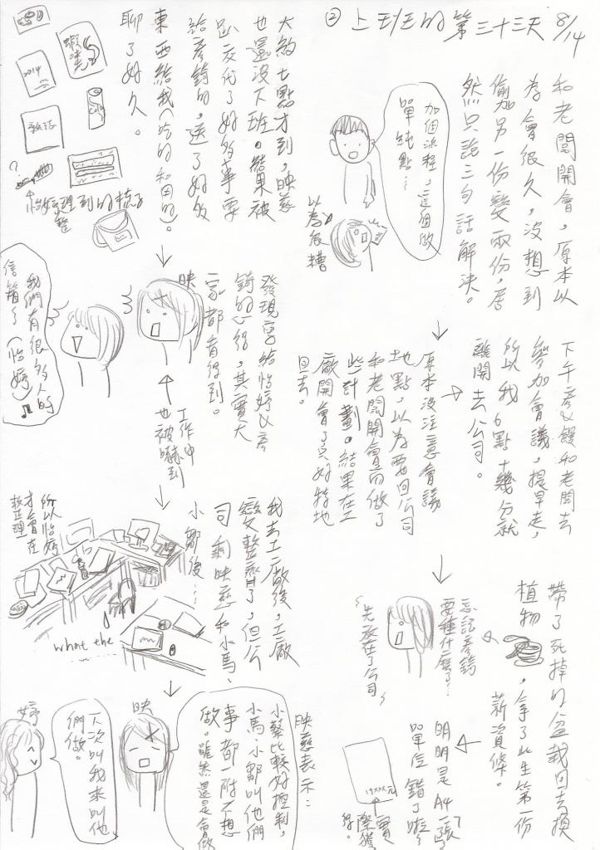 ② 上班的第三十三天 8/14
和老闆開會，原本以
為會很久，沒想到
偷加另一份變兩份，居
然只說三句話解決。
加個流程，這個做
單純點…
以為很糟
下午彥錡和老闆去
參加會議，提早走，
所以我6點十幾分就
離開去公司。
原本沒注意會議
地點，以為要回公司
和老闆開會而做了
些計劃。結果在工
廠開會了只好特地
回去。
帶了死掉的盆栽回去換
植物，拿了此生第一份
薪資條。
忘記彥錡
要種什麼了…
先放在了公司
明明是A4一張
單位錯了啦，
大約七點才到，映慈
也還沒下班。結果被
趴交代了好多事要
給彥錡的，送了好多
東西給我（吃的和用的）。
聊了好久。
蝦味
2014
發現寫給怡婷以彥
錡的心得，其實大
家都看得到。
映
工作中
也被嚇到
我們有很多人的
信箱了（怡婷）
我去工廠後，工廠
變整齊了，但公
司剩映慈和小馬、
小鄒後…
所以怡婷
才會在
整理
what the
映慈表示：
小蔡比較好控制，
小馬小鄒叫他們
事都一附不想
做。雖然還是會做
映
婷
下次叫我來叫他
們做。